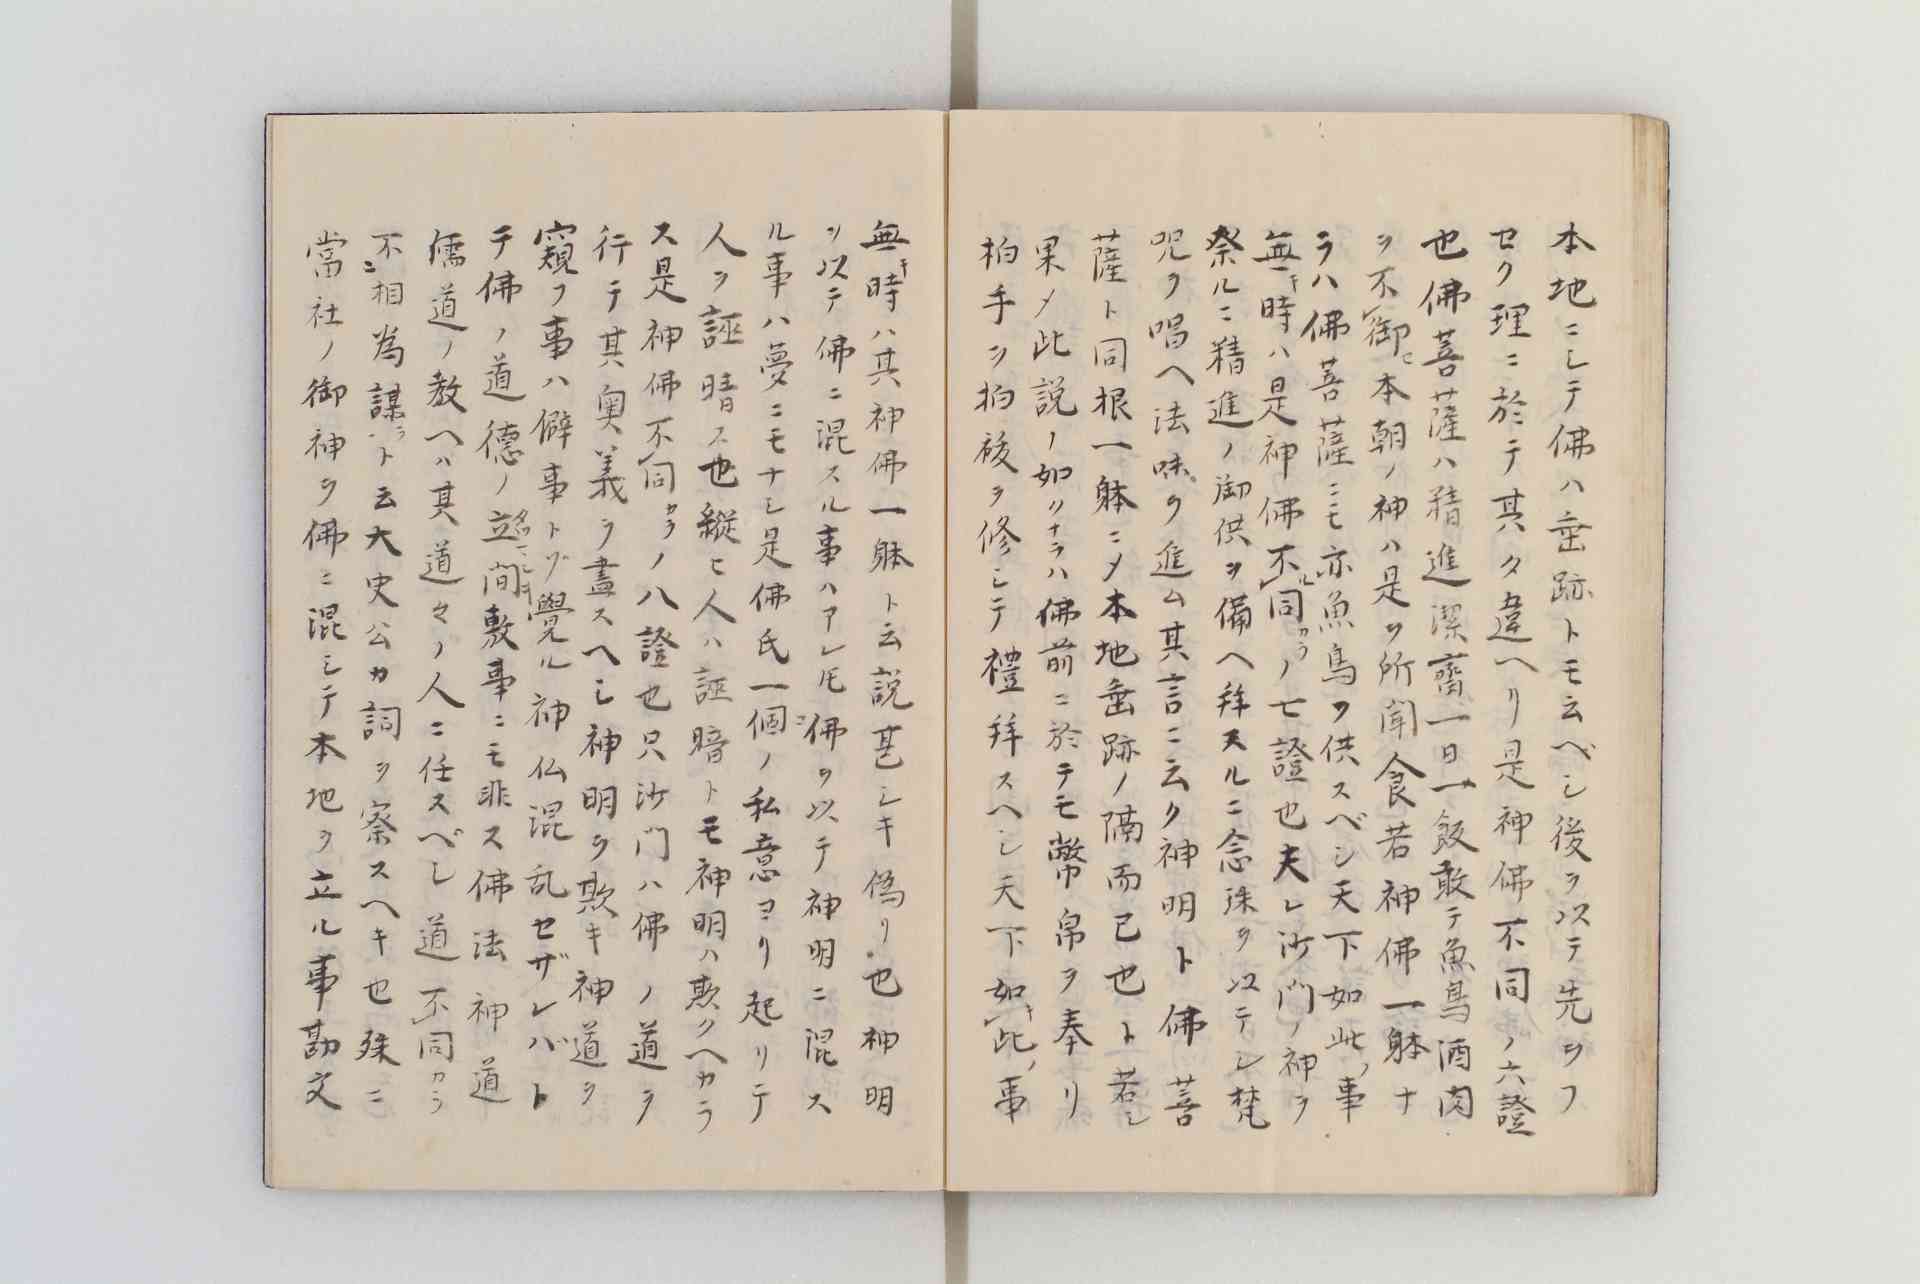 本地ニシテ佛ハ垂跡トモ云ベシ後ヲ以テ先ツフ
セク理ニ於テ其タ違ヘリ是神佛不同ノ六證
也佛菩薩ハ精進潔齋一日一飯敢テ魚鳥酒肉
ヲ不御本朝ノ神ハ是ツ所聞食若神佛一躰ナ
ラハ佛菩薩ニモ亦魚鳥ヲ供スベシ天下如此ノ事
無キ時ハ是神佛不同カラノ七證也夫レ沙門ノ神ヲ
祭ルニ精進ノ御供ヲ備ヘ拜スルニ念珠ヲ以テシ梵
咒ヲ唱ヘ法味ヲ進ム其言ニ云ク神明ト佛菩
薩ト同根一躰ニメ本地垂跡ノ隔而已也ト若シ
果メ此説ノ如クナラハ佛前ニ於テモ幣帛ヲ奉リ
柏手ヲ拍祓ヲ修シテ禮拜スヘシ天下如此キノ事
無キ時ハ其神佛一躰ト云説甚シキ偽リ也神明
ヲ以テ佛ニ混スル事ハアレ𪜈佛ヲ以テ神明ニ混ス
ル事ハ夢ニモナシ是佛氏一個ノ私意ヨリ起リテ
人ヲ誣暗ス也縱ヒ人ハ誣暗トモ神明ハ欺クヘカラ
ス是神佛不同カラノ八證也只沙門ハ佛ノ道ヲ
行テ其奥義ヲ盡スヘシ神明ヲ欺キ神道ヲ
窺フ事ハ僻事トゾ覺ル神仏混乱セザレバト
テ佛ノ道德ノ立間敷事ニモ非ス佛法神道
儒道ノ教ヘハ其道々ノ人ニ任スベシ道不同カラ
不相為謀ラト云大史公カ詞ヲ察スヘキ也殊ニ
當社ノ御神ヲ佛ニ混シテ本地ヲ立ル事勘文